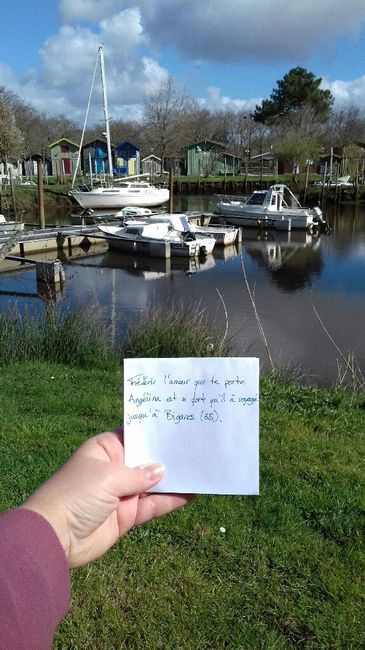 Frédéric l'amour que te porte
Angélina est si fort qu'il à voyagé
jusqu'à Biganos (33).